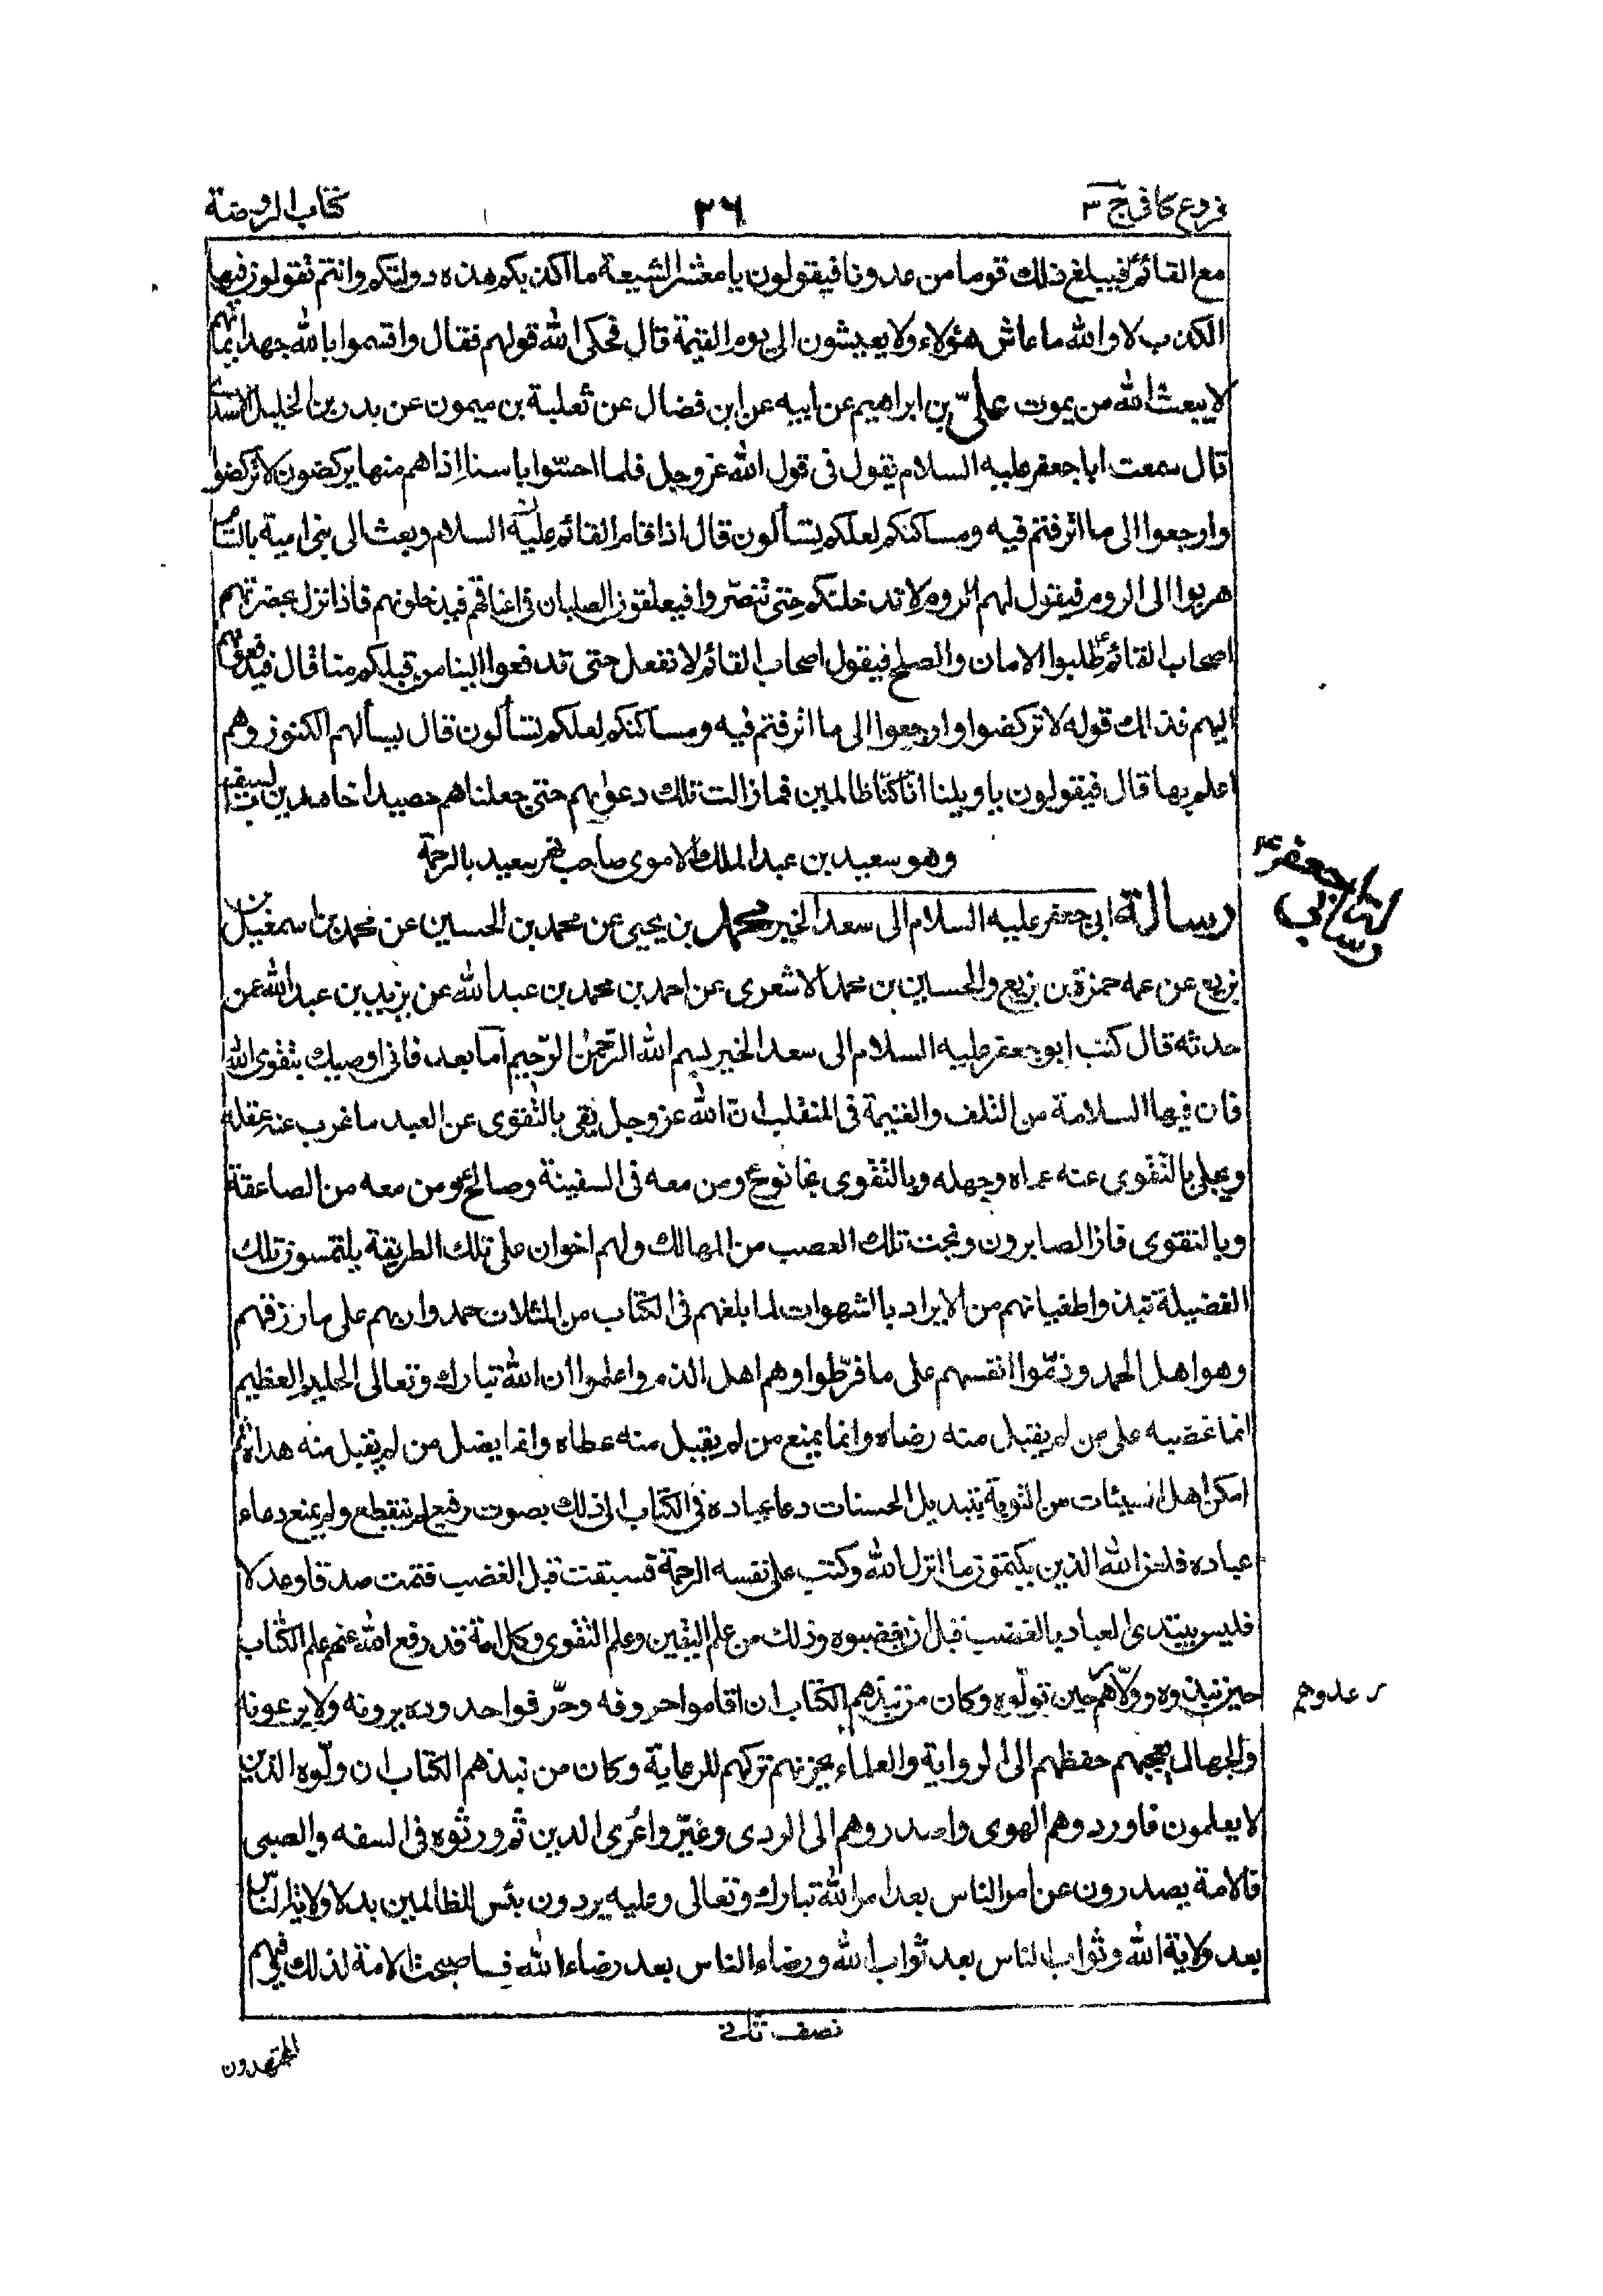 فروع كافى ج ٣
٢٦
كتاب الروضة
مع القائم فيبلغ ذلك قوما من عدونا فيقولون يا معشر الشيعة ما اكذبكم هذه دولتكم وانتم تقولون فيها
الكذب لا والله ما عاش هؤلاء ولا يعيشون الى يوم القيمة قال فحكى الله قولهم فقال واقسموا بالله جهد ايمانهم
لا يبعث الله من يموت على بن ابراهيم عن ابيه عن ابن فضال عن ثعلبة بن ميمون عن بدر بن الخليل الاسدى
قال سمعت ابا جعفر عليه السلام يقول فى قول الله عز وجل فلما احسّوا باسنا اذا هم منها يركضون لا تركضوا
وارجعوا الى ما اترفتم فيه ومساكنكم لعلكم تسألون قال اذا قام القائم عليه السلام وبعث الى بنى امية بالشام
هربوا الى الروم فيقول لهم الروم لا ندخلنكم حتى تتنصّروا فيعلقون الصلبان فى اعناقهم فيدخلونهم فاذا نزل بحضرتهم
اصحاب القائم طلبوا الامان والصلح فيقول اصحاب القائم لا نفعل حتى تدفعوا الينا من قبلكم منا قال فيدفعونهم
اليهم فذلك قوله لا تركضوا وارجعوا الى ما اترفتم فيه ومساكنكم لعلكم تسألون قال يسألهم الكنوز وهم
اعلم بها قال فيقولون يا ويلنا انا كنّا ظالمين فما زالت تلك دعويهم حتى جعلناهم حصيدا خامدين بالسيف
وهو سعيد بن عبد الملك الاموى صاحب نهر سعيد بالرحمة
رسالة ابى جعفر عليه السلام الى سعد الخير محمد بن يحيى عن محمد بن الحسين عن محمد بن اسمعيل بن
بزيع عن عمه حمزة بن بزيع والحسين بن محمد الاشعرى عن احمد بن محمد بن عبد الله عن يزيد بن عبد الله عن
حدثه قال كتب ابو جعفر عليه السلام الى سعد الخير بسم الله الرّحمن الرّحيم اما بعد فانى اوصيك بتقوى الله
فان فيها السلامة من التلف والغنيمة فى المنقلب ان الله عز وجل يقى بالتقوى عن العبد ما غرب عنه عقله
ويجلى بالتقوى عنه عماه وجهله وبالتقوى نجا نوح ومن معه فى السفينة وصالح ومن معه من الصاعقة
وبالتقوى فاز الصابرون ونجت تلك العصب من المهالك ولهم اخوان على تلك الطريقة يلتمسون تلك
الفضيلة نبذوا طغيانهم من الايراد بالشهوات لما بلغهم فى الكتاب من المثلات حمدوا ربهم على ما رزقهم
وهو اهل الحمد وذمّوا انفسهم على ما فرّطوا وهم اهل الذم واعلموا ان الله تبارك وتعالى الحليم العظيم
انما غضبه على من لم يقبل منه رضاه وانما يمنع من لم يقبل منه عطاه وانما يضل من لم يقبل منه هداه ثم
امكن اهل السيئات من التوبة بتبديل الحسنات دعا عباده فى الكتاب الى ذلك بصوت رفيع لم ينقطع ولم يمنع دعاء
عباده فلعن الله الذين يكتمون ما انزل الله وكتب على نفسه الرحمة فسبقت قبل الغضب فتمت صدقا وعدلا
فليس يبتدئ العباد بالغضب قبل ان يغضبوه وذلك من علم اليقين وعلم التقوى وكل امة قد رفع الله عنهم علم الكتاب
حين نبذوه وولّاهم حين تولّوه وكان من نبذهم الكتاب ان اقاموا حروفه وحرّفوا حدوده يروونه ولا يرعونه
والجهال يعجبهم حفظهم الى الرواية والعلماء يحزنهم تركهم للرعاية وكان من نبذهم الكتاب ان ولّوه الذين
لا يعلمون فاوردوهم الهوى واصدروهم الى الردى وغيّروا عرى الدين ثم ورثوه فى السفه والصبى
فالامة يصدرون عن امر الناس بعد امر الله تبارك وتعالى وعليه يردون بئس للظالمين بدلا ولاية الناس
بعد ولاية الله وثواب الناس بعد ثواب الله ورضاء الناس بعد رضاء الله فاصبحت الامة لذلك فيهم
عدوهم
نصف ثانى
المجتهدون